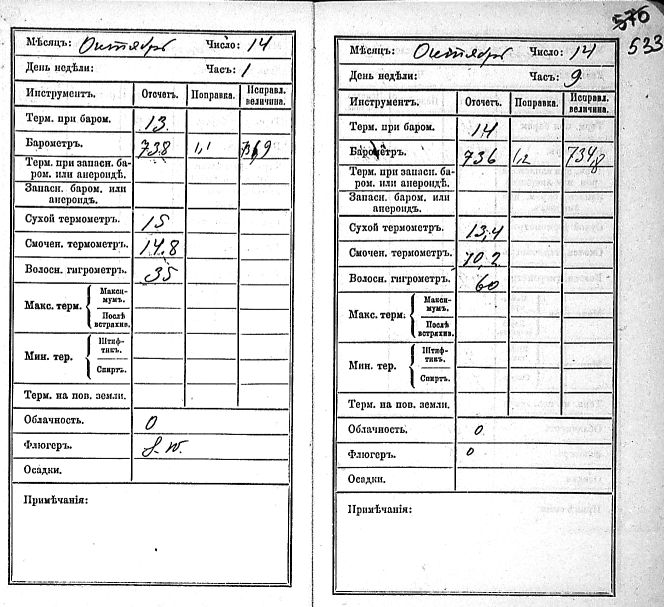 576
533
Мѣсяцъ: Октябрь Число: 14
День недѣли: Часъ: 1
Инструментъ. Отсчетъ. Поправка. Исправл. величина.
Терм. при баром. 13
Барометръ. 738 1,1 736,9
Терм. при запасн. ба-
ром. или анероидѣ.
Запасн. баром. или
анероидъ.
Сухой термометръ. 15
Смочен. термометръ. 14.8
Волосн. гигрометръ. 35
Макс. терм. Макси-
мумъ.
Послѣ
встряхив.
Мин. тер. Штиф-
тикъ.
Спиртъ.
Терм. на пов. земли.
Облачность. 0
Флюгеръ. S. W.
Осадки.
Примѣчанія:
Мѣсяцъ: Октябрь Число: 14
День недѣли: Часъ: 9
Инструментъ. Отсчетъ. Поправка. Исправл. величина.
Терм. при баром. 14
Барометръ. 736 1,2 734,8
Терм. при запасн. ба-
ром. или анероидѣ.
Запасн. баром. или
анероидъ.
Сухой термометръ. 13,4
Смочен. термометръ. 10,2
Волосн. гигрометръ. 60
Макс. терм. Макси-
мумъ.
Послѣ
встряхив.
Мин. тер. Штиф-
тикъ.
Спиртъ.
Терм. на пов. земли.
Облачность. 0
Флюгеръ. 0
Осадки.
Примѣчанія: